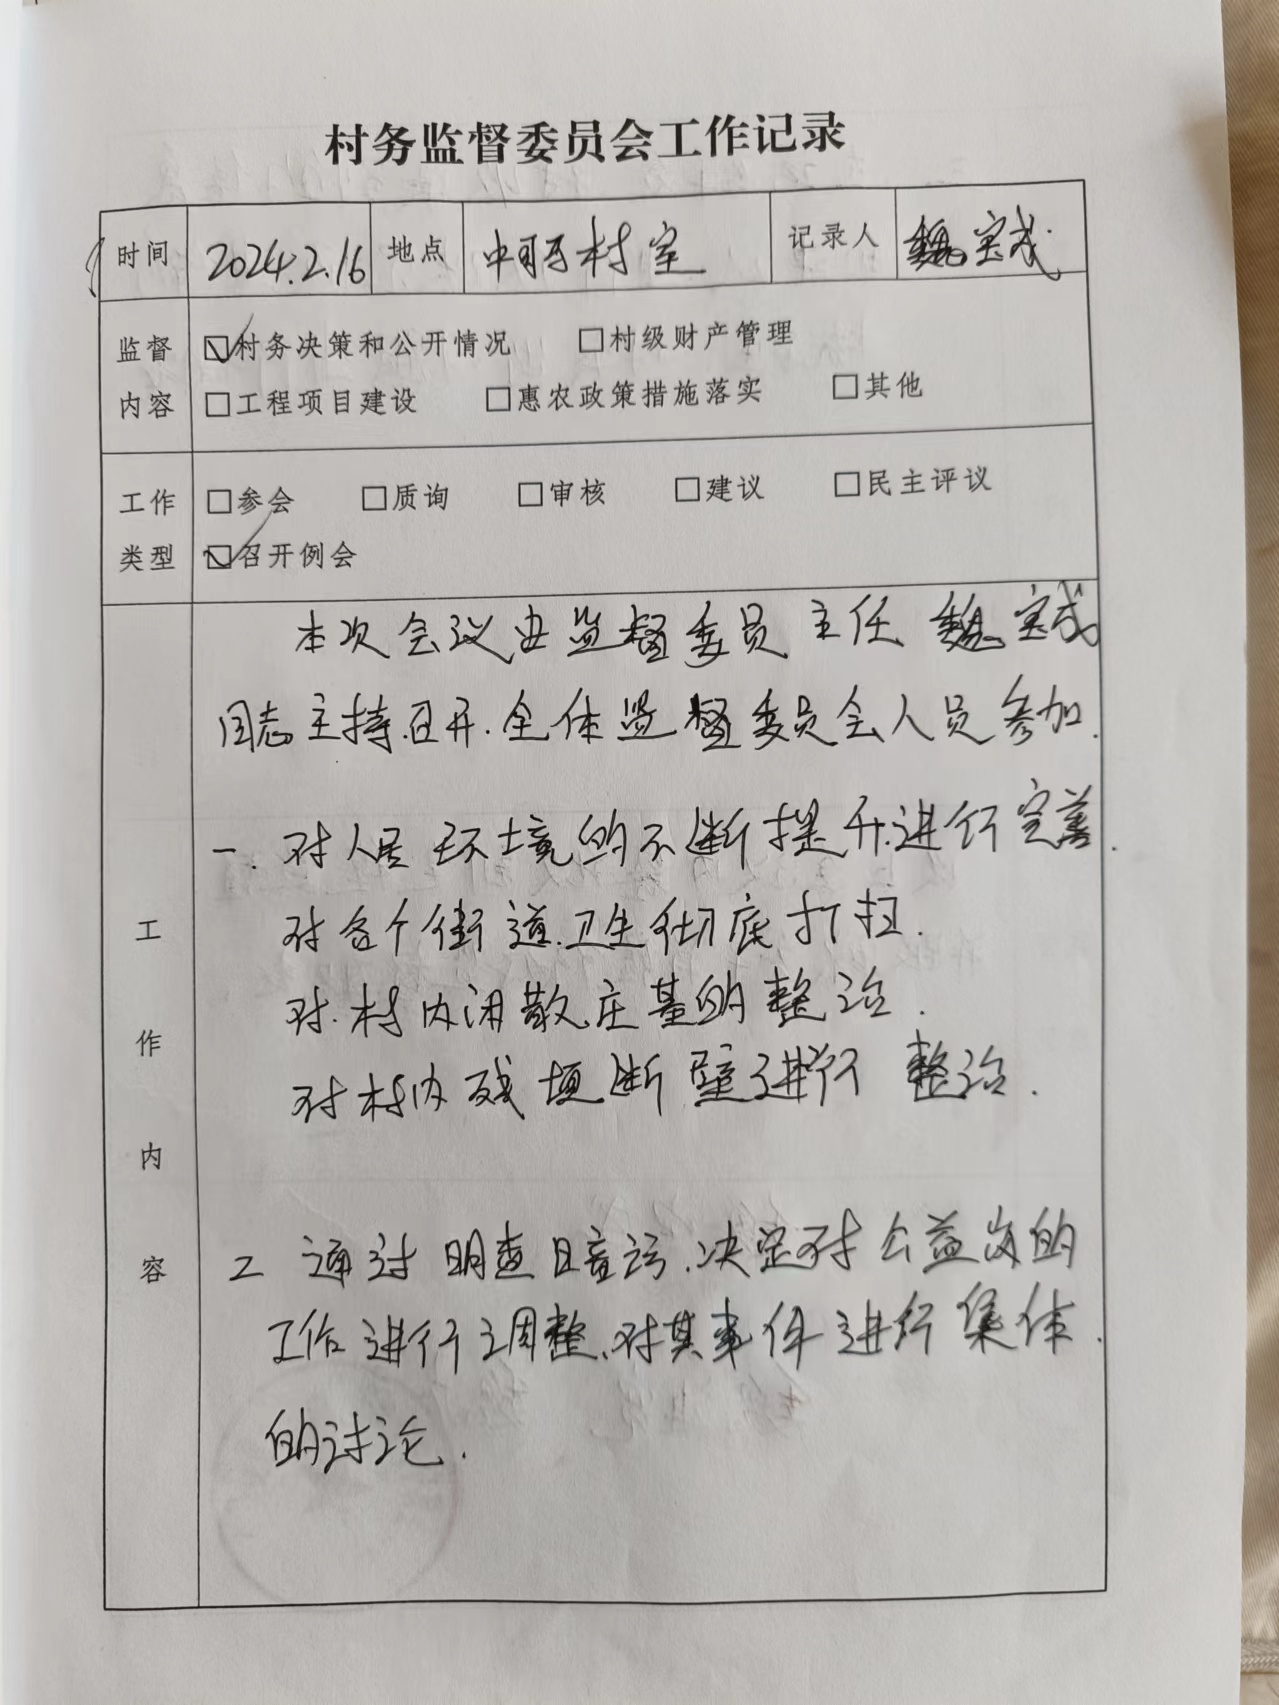 村务监督委员会工作记录
时间 2024.2.16 地点 中 村室 记录人 魏宝成
监督内容 ☑村务决策和公开情况 □村级财产管理
□工程项目建设 □惠农政策措施落实 □其他
工作类型 □参会 □质询 □审核 □建议 □民主评议
☑召开例会
工作内容
本次会议由监督委员主任魏宝成
同志主持召开.全体监督委员会人员参加.
一.对人居环境的不断提升进行完善.
对各个街道卫生彻底打扫.
对村内闲散庄基的整治.
对村内残垣断壁进行整治.
二 通过明查暗访.决定对公益岗的
工作进行调整、对其事件进行集体
的讨论.